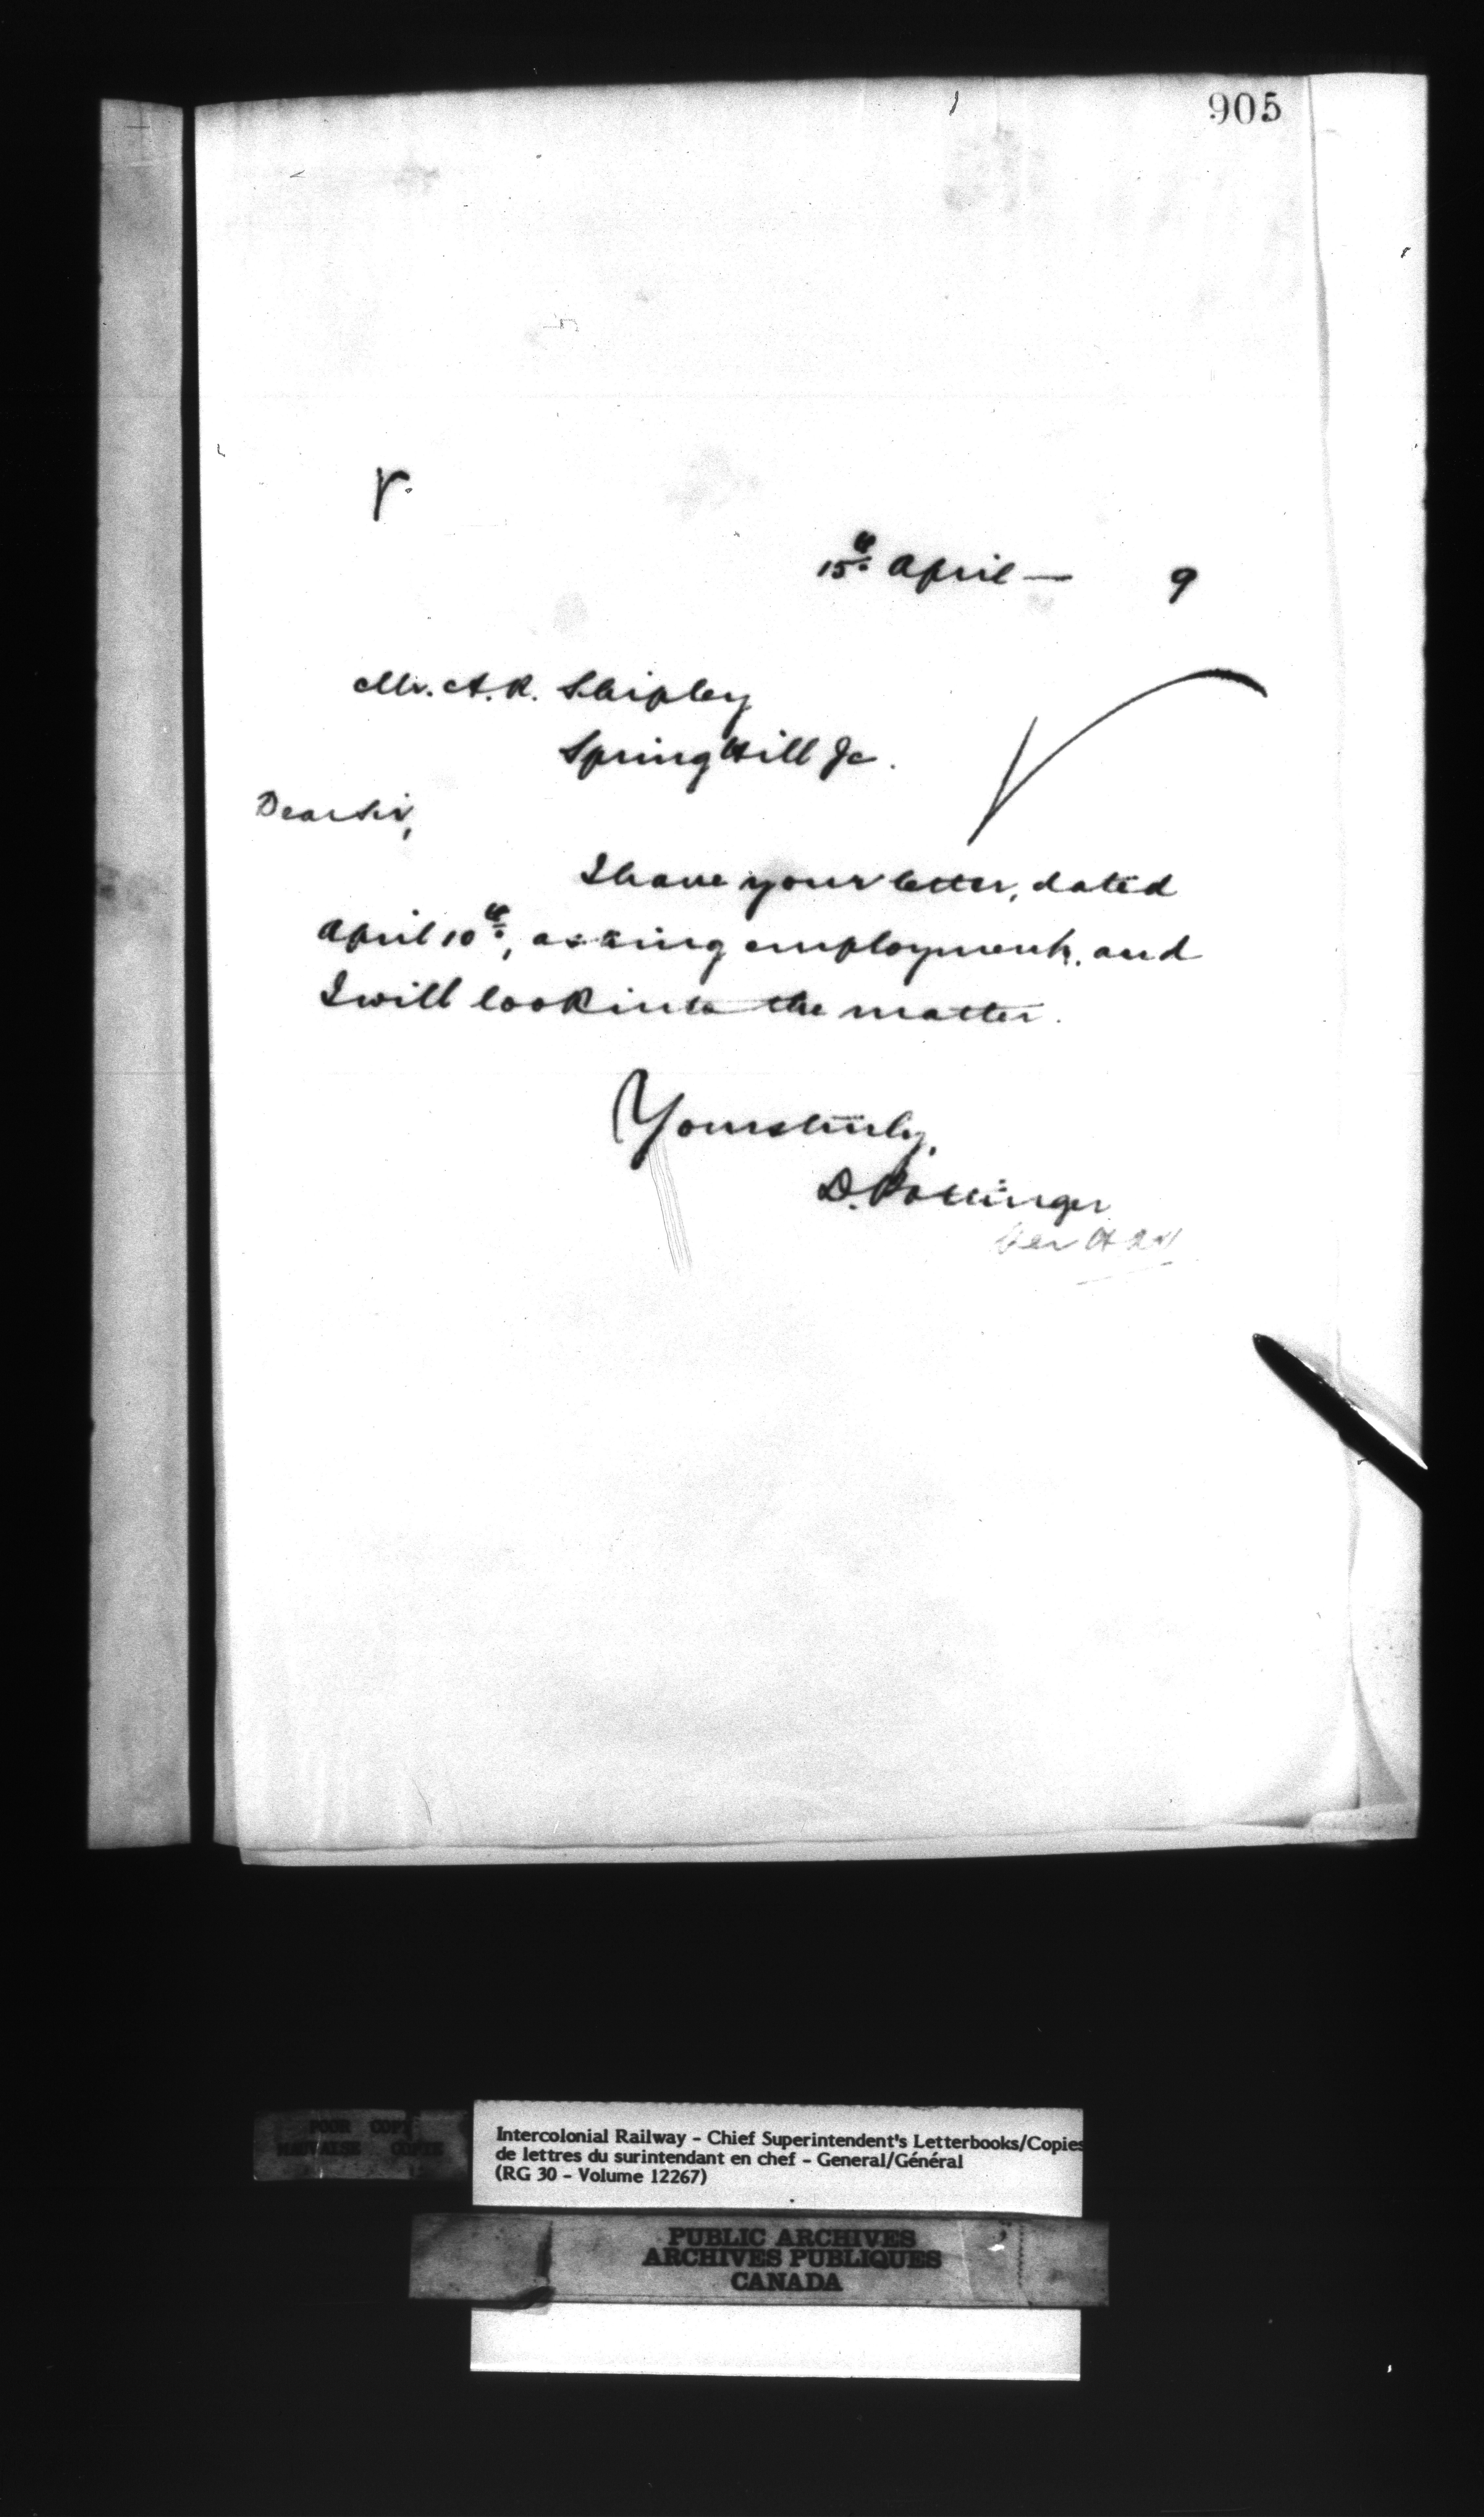 905
15th April — 9
Mr. A. R. Shipley
Spring Hill Jc.
Dear Sir,
I have your letter, dated
April 10th, asking employment, and
I will look into the matter.
Yours truly,
D. Pottinger
POUR COPY
MAUVAISE COPIE
Intercolonial Railway - Chief Superintendent's Letterbooks/Copies
de lettres du surintendant en chef - General/Général
(RG 30 - Volume 12267)
PUBLIC ARCHIVES
ARCHIVES PUBLIQUES
CANADA